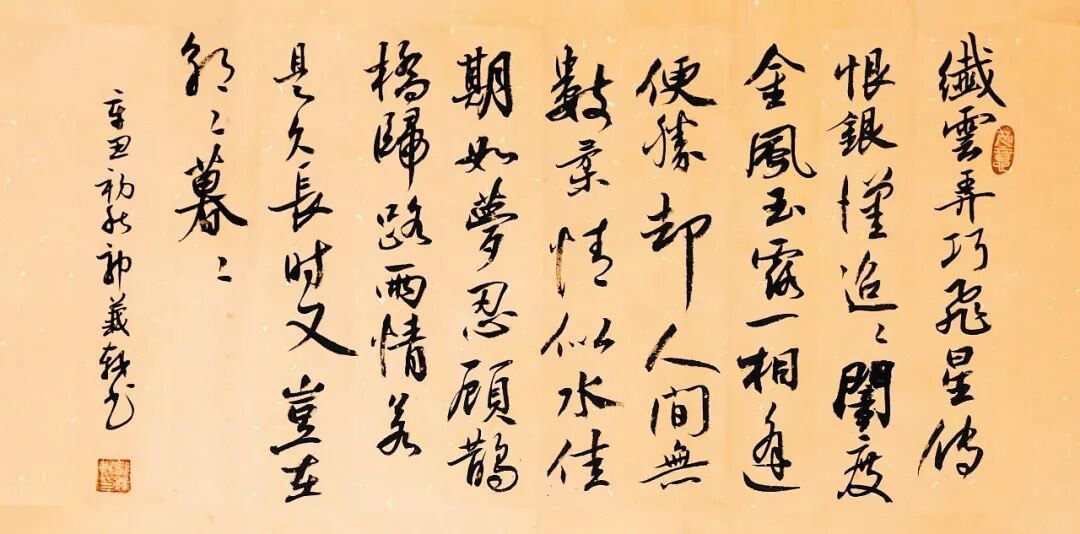 纖雲弄巧飛星傳
恨銀漢迢〻闇度
金風玉露一相逢
便勝却人間無
數柔情似水佳
期如夢忍顧鵲
橋歸路兩情若
是久長时又豈在
朝〻暮〻
辛丑初秋郭義軒书